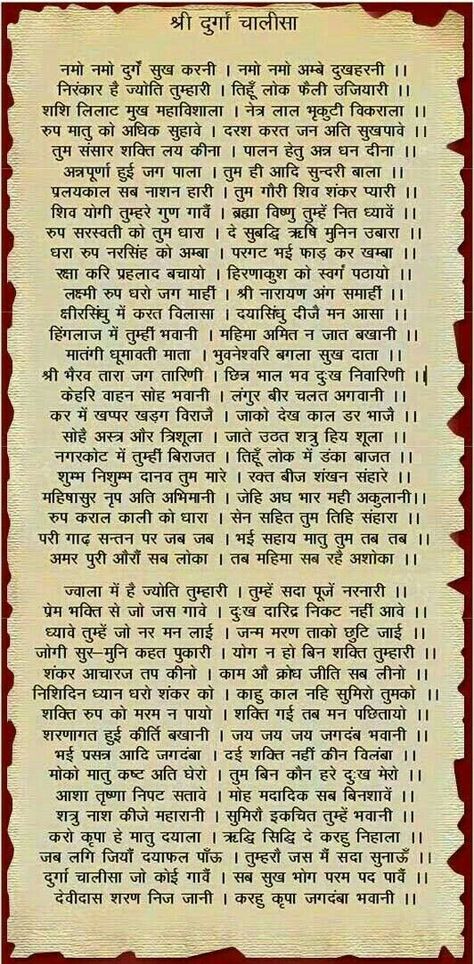 श्री दुर्गा चालीसा
नमो नमो दुर्गे सुख करनी । नमो नमो अम्बे दुखहरनी ।।
निरंकार है ज्योति तुम्हारी । तिहूँ लोक फैली उजियारी ।।
शशि लिलाट मुख महाविशाला । नेत्र लाल भृकुटी विकराला ।।
रुप मातु को अधिक सुहावे । दरश करत जन अति सुखपावे ।।
तुम संसार शक्ति लय कीना । पालन हेतु अन्न धन दीना ।।
अन्नपूर्णा हुई जग पाला । तुम ही आदि सुन्दरी बाला ।।
प्रलयकाल सब नाशन हारी । तुम गौरी शिव शंकर प्यारी ।।
शिव योगी तुम्हरे गुण गावैं । ब्रह्मा विष्णु तुम्हें नित ध्यावें ।।
रुप सरस्वती को तुम धारा । दे सुबद्धि ऋषि मुनिन उबारा ।।
धरा रुप नरसिंह को अम्बा । परगट भई फाड़ कर खम्बा ।।
रक्षा करि प्रहलाद बचायो । हिरणाकुश को स्वर्ग पठायो ।।
लक्ष्मी रुप धरो जग माहीं । श्री नारायण अंग समाहीं ।।
क्षीरसिंधु में करत विलासा । दयासिंधु दीजै मन आसा ।।
हिंगलाज में तुम्हीं भवानी । महिमा अमित न जात बखानी ।।
मातंगी धूमावती माता । भुवनेश्वरि बगला सुख दाता ।।
श्री भैरव तारा जग तारिणी । छिन्न भाल भव दुःख निवारिणी ।।
केहरि वाहन सोह भवानी । लंगुर बीर चलत अगवानी ।।
कर में खप्पर खड़ग विराजै । जाको देख काल डर भाजै ।।
सोहै अस्त्र और त्रिशूला । जाते उठत शत्रु हिय शूला ।।
नगरकोट में तुम्हीं बिराजत । तिहूँ लोक में डंका बाजत ।।
शुम्भ निशुम्भ दानव तुम मारे । रक्त बीज शंखन संहारे ।।
महिषासुर नृप अति अभिमानी । जेहि अघ भार मही अकुलानी।।
रुप कराल काली को धारा । सेन सहित तुम तिहि संहारा ।।
परी गाढ़ सन्तन पर जब जब । भई सहाय मातु तुम तब तब ।।
अमर पुरी औरौं सब लोका । तब महिमा सब रहै अशोका ।।
ज्वाला में है ज्योति तुम्हारी । तुम्हें सदा पूजें नरनारी ।।
प्रेम भक्ति से जो जस गावे । दुःख दारिद्र निकट नहीं आवे ।।
ध्यावे तुम्हें जो नर मन लाई । जन्म मरण ताको छुटि जाई ।।
जोगी सुर-मुनि कहत पुकारी । योग न हो बिन शक्ति तुम्हारी ।।
शंकर आचारज तप कीनो । काम औ क्रोध जीति सब लीनो ।।
निशिदिन ध्यान धरो शंकर को । काहु काल नहि सुमिरो तुमको ।।
शक्ति रुप को मरम न पायो । शक्ति गई तब मन पछितायो ।।
शरणागत हुई कीर्ति बखानी । जय जय जय जगदंब भवानी ।।
भई प्रसन्न आदि जगदंबा । दई शक्ति नहीं कीन विलंबा ।।
मोको मातु कष्ट अति घेरो । तुम बिन कौन हरे दुःख मेरो ।।
आशा तृष्णा निपट सतावे । मोह मदादिक सब बिनशावें ।।
शत्रु नाश कीजे महारानी । सुमिरौ इकचित तुम्हें भवानी ।।
करो कृपा हे मातु दयाला । ऋद्धि सिद्धि दे करहु निहाला ।।
जब लगि जियौं दयाफल पाँऊ । तुम्हरौ जस मैं सदा सुनाऊँ ।।
दुर्गा चालीसा जो कोई गावैं । सब सुख भोग परम पद पावैं ।।
देवीदास शरण निज जानी । करहु कृपा जगदंबा भवानी ।।